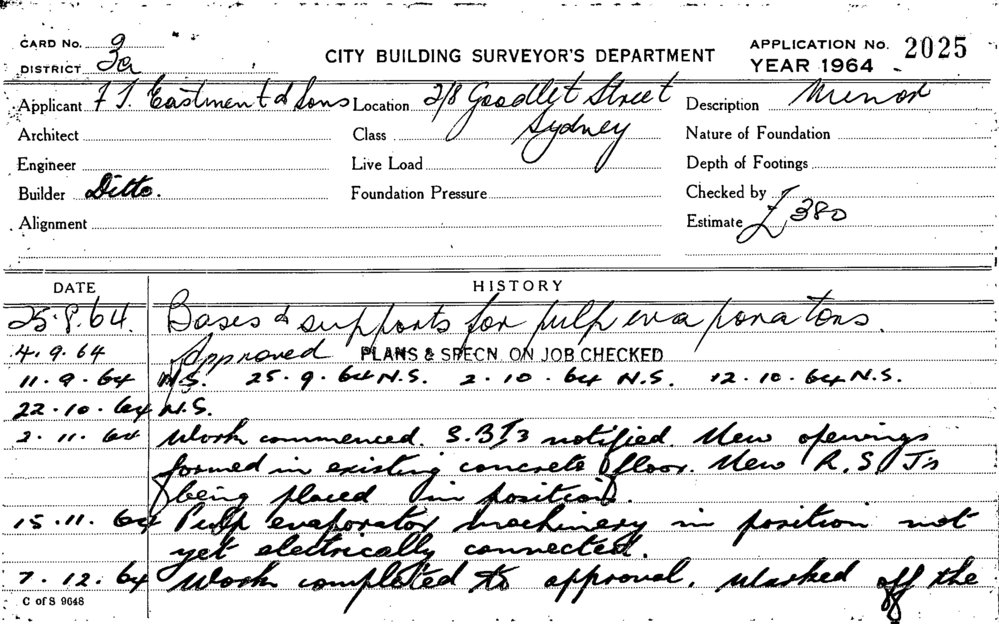 CARD No. 9
DISTRICT 3a
CITY BUILDING SURVEYOR'S DEPARTMENT
APPLICATION No. 2025
YEAR 1964
Applicant F J. Eastment & Sons Location 2/8 Goodlet Street Sydney Description Minor
Architect Class Nature of Foundation
Engineer Live Load Depth of Footings
Builder Ditto. Foundation Pressure Checked by
Alignment Estimate £380
DATE HISTORY
25.8.64. Bases & supports for pulp evaporators.
4.9.64 Approved PLANS & SPECN ON JOB CHECKED
11.9.64 N.S. 25.9.64 N.S. 2.10.64 N.S. 12.10.64 N.S.
22.10.64 N.S.
2.11.64 Work commenced. notified. New openings
formed in existing concrete floor. New R.S.J's
being placed in position.
15.11.64 Pulp evaporator machinery in position not
yet electrically connected.
7.12.64 Work completed to approval. Marked off the
C of S 9048